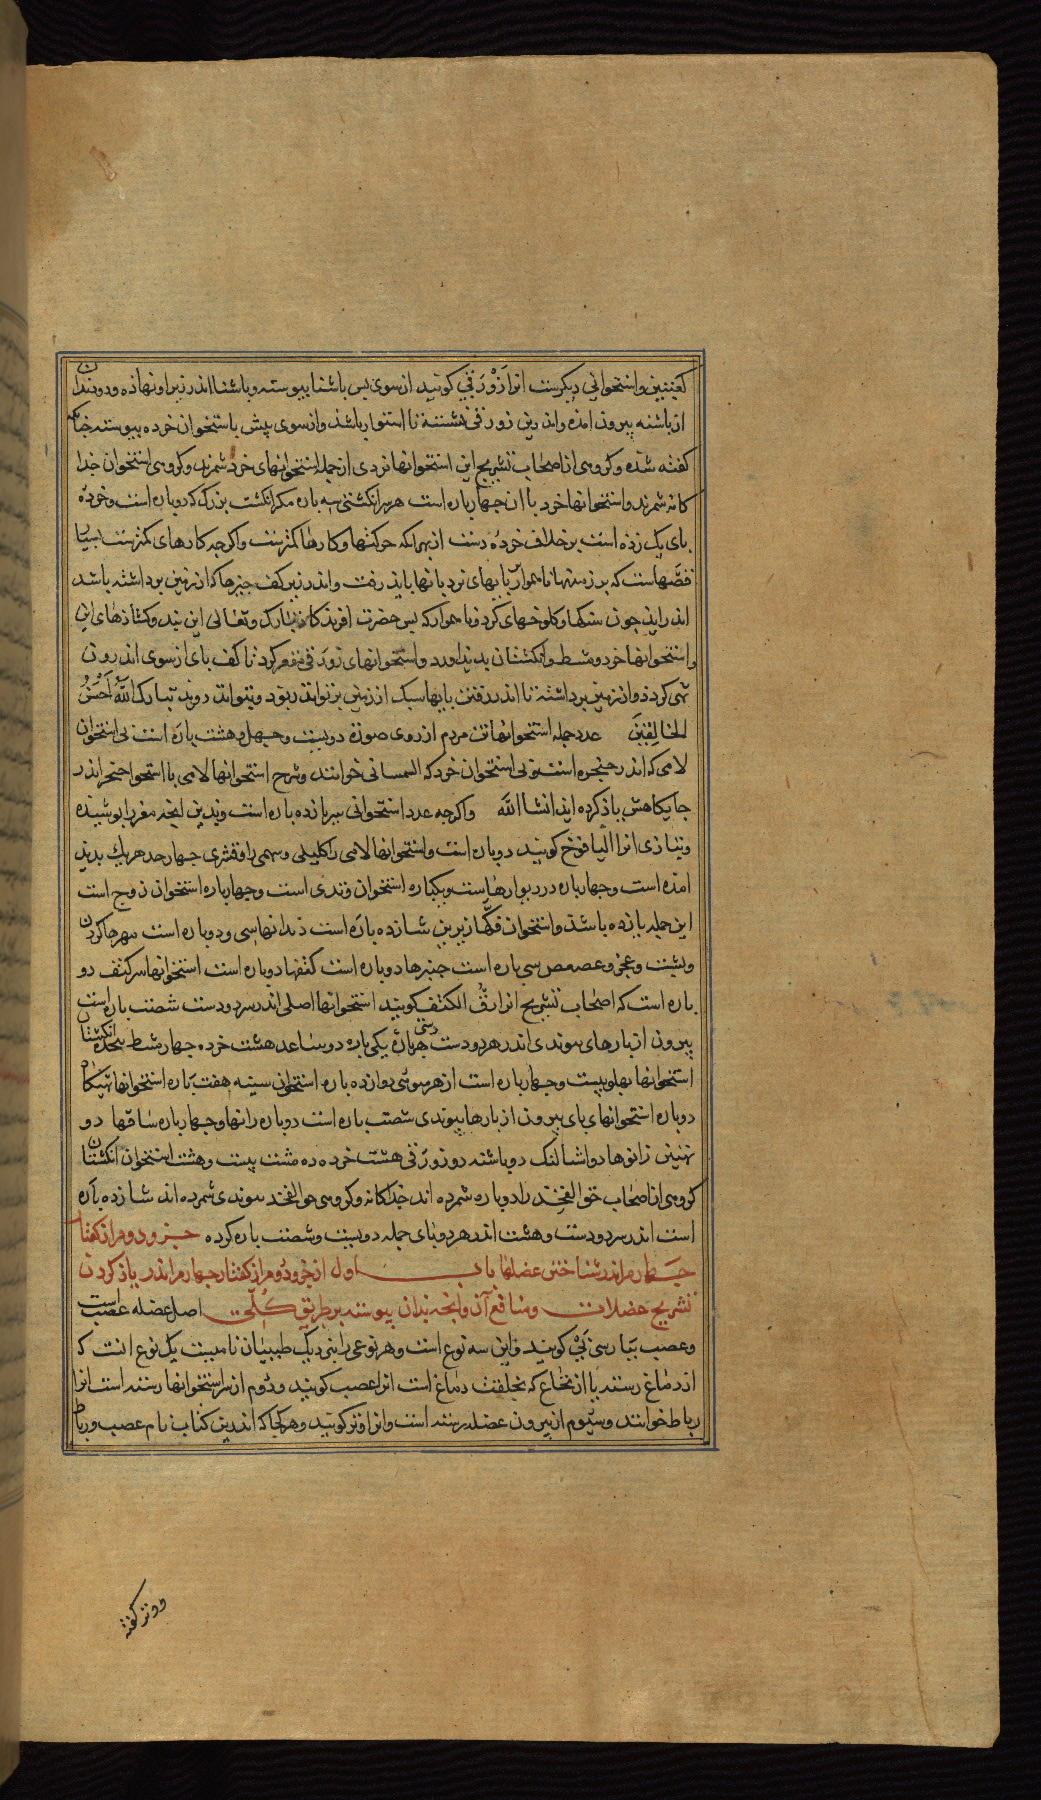 کعبتین و استخوانی دیکرست انرا زَوْرَقی کویند از سوی پس باشنا پیوسته و پاشنا اندر زیر او نهاذه و دو دندان
از پاشنه بیرون امذه و اندرین زورقی نشسته تا استوار باشذ و از سوی پیش باستخوان خرده پیوسته چنانکه
کفته شذه و کروهی از اصحاب تشریح این استخوانها نردی از جمله استخوانهای خرد شمرند و کروهی استخوان جدا
کانه شمرند و استخوانها خرد با ان چهار پاره است هر انکشتی سه پاره مکر انکشت بزرک که دو پاره است و خرده
پای یک رده است برخلاف خرده دست از بهر انکه حرکتها و کارها کمترست و اکرجه کارهای کمترست بسیار
که بر زمینها ناهموار با پایهای نردبانها باید رفت و اندر زیر کف چیزها که از زمین برداشته باشد
اندر اید چون سنکها و کلوخهای کرد و ناهموار که بس حضرت افریذکار تبارک و تعالی این بند و کشاذهای این
و استخوانها خرد و مشط و انکشتان بدید اورد و استخوانهای زورقی مقعر کرد تا کف پای از سوی اندرون
تهی کردذ و از زمین برداشته تا اندر رفتن پایها سبک از زمین بر تواند ربود و بتواند دوید تبارک اللّٰهُ اَحْسَنُ
الخالِقِینَ عدد جمله استخوانهاتن مردم از روی صورة دویست و چهل و هشت پاره است بی استخوان
لامی که اندر حنجره است و بی استخوان خرد که السمسانی خوانند و شرح استخوانها لامی با استخوا حنجر اندر
جایکاهش یاذ کرده ایذ انشا الله و اکرجه عدد استخوانی سر یازده پاره است و بدین انچه مغز را بوشیذه
و بتازی انرا الیافوخ کویند دو پاره است و استخوانها لامی و اکلیلی و سهمی و قشری چهار حد هر یک بدید
امذه است و چهار پاره در دیوارهاست و یکپاره استخوان وتدی است و چهار پاره استخوان زوج است
این جمله یازده باشذ و استخوان فکّ زبرین شازده پاره است دندانها سی و دو پاره است مهرها کردن
و پشت و عجز و عصعص سی پاره است چنبرها دو پاره است کتفها دو پاره است استخوانها سر کتف دو
پاره است که اصحاب تشریح انرا رقّ الکتف کویند استخوانها اصلی اندر هر دو دست شصت پاره است
بیرون از پارهای پیوندی اندر هر دو دست هر دستی پارهٔ یکی بازو دو ساعد هشت خرده چهار مشط پنجده انکشتان
استخوانها پهلو بیست و چهار پاره است از هر سوی دوازده پاره استخوان سینه هفت پاره استخوانها تهیکاه
دو پاره استخوانهای پای بیرون از پارها پیوندی شصت پاره است دو پاره رانها و چهار پاره ساقها دو
زانوها دو اشالنک دو پاشنه دو زورقی هشت خرده ده مشت بیست و هشت استخوان انکشتان
کروهی از اصحاب حق الفخذ را دو پاره شمرده اند جداکانه و کروهی حق الفخذ پیوندی شمرده اند شازده پاره
است اندر هر دو دست و هشت اندر هر دو پای جمله دویست و شصت پاره کرده جزو دوم از کفتار
چهارم اندر شناختن عضلها باب اول از جزو دوم از کفتار چهارم اندر یاذ کردن
تشریح عضلات و منافع آن و انچه بذان پیوسته بر طریق کُلّی اصل عضله عصب است
و عصب بپارسی پَیْ کویند و این سه نوع است و هر نوعی را بنزدیک طبیبان نامیست یک نوع انست که
از دماغ رستذ یا از نخاع که خلیفت دماغ است انرا عصب کویند و دوم از سر استخوانها رستذ است انرا
رباط خوانند و سیّوم از بیرون عضله رسته است و انرا وتر کویند و هر کجا که اندرین کتاب نام عصب و رباط
و وتر کفته